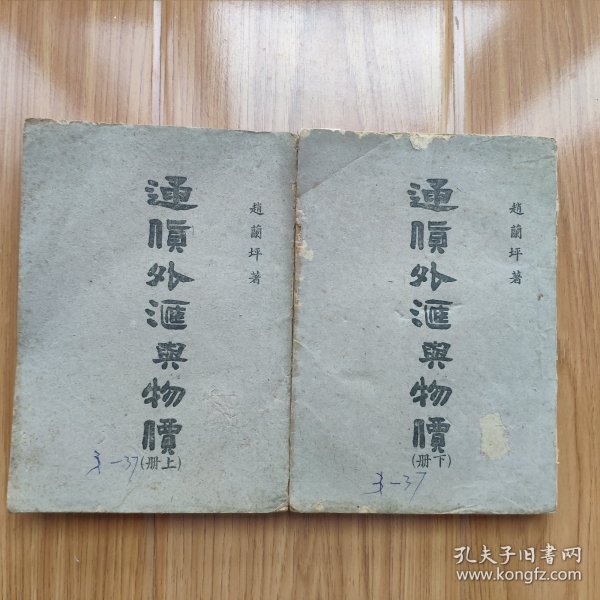 通貨外滙與物價
(上册)
趙蘭坪著
通貨外滙與物價
(下册)
趙蘭坪著
孔夫子旧书网
www.kongfz.com